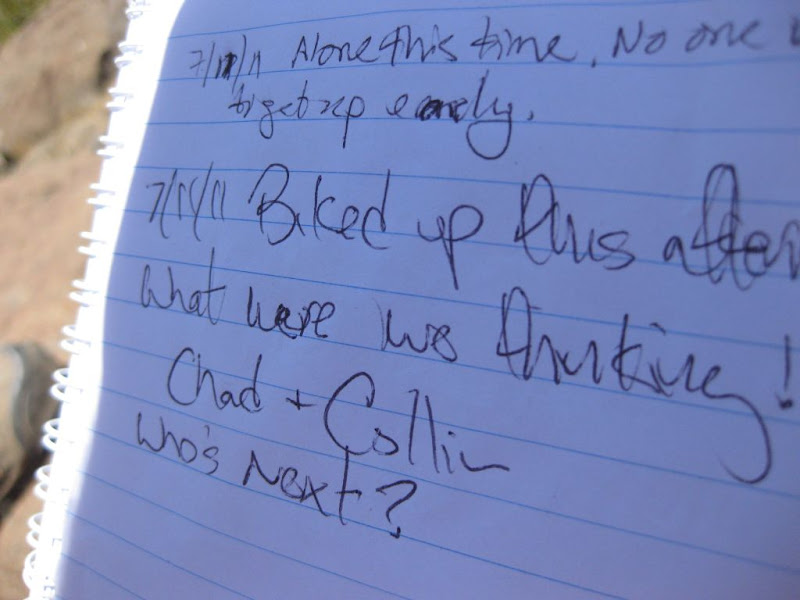 7/11/11 Alone this time. No one
to get up early.
7/11/11 Biked up this after
What were we thinking!
Chad + Collin
Who's Next?